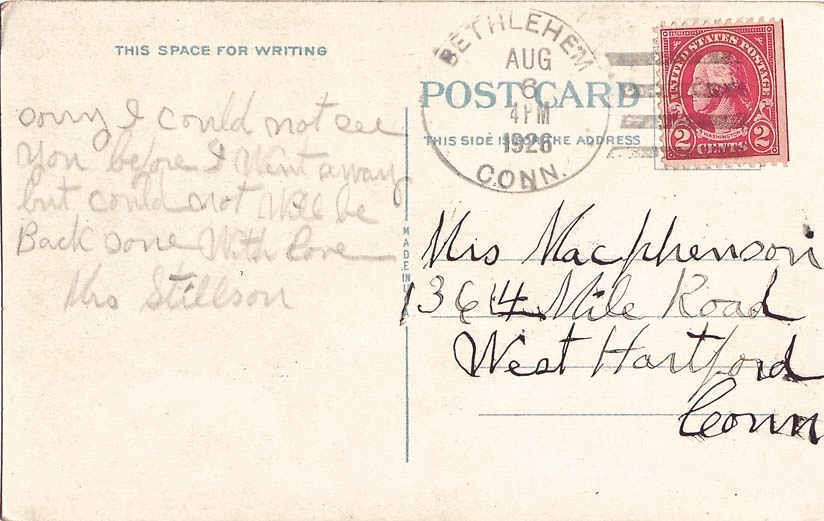 THIS SPACE FOR WRITING
sorry I could not see
you before I Went away
but could not Will be
Back sone With love
Mrs Stillson
BETHLEHEM
AUG
6
4 PM
1926
CONN.
POST CARD
THIS SIDE IS FOR THE ADDRESS
UNITED STATES POSTAGE
WASHINGTON
2 CENTS 2
MADE IN U.S.A
Mrs Macphenson
1364 Mile Road
West Hartford
Conn